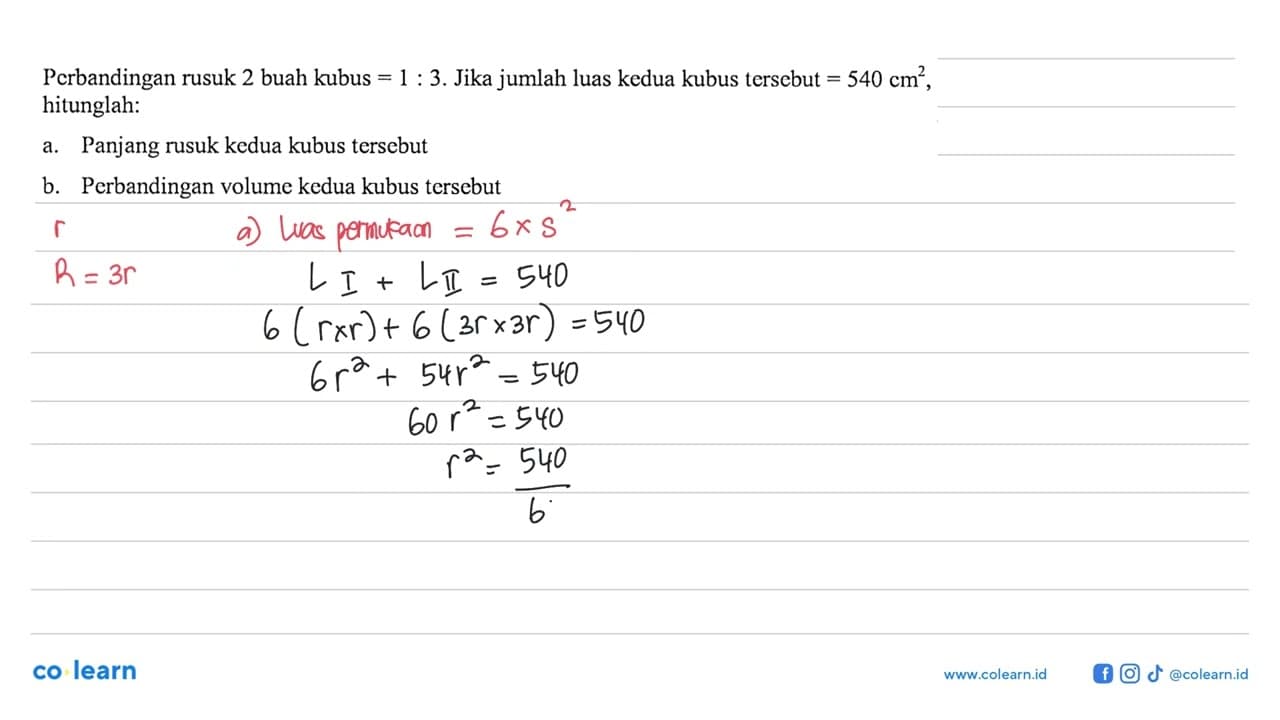 Perbandingan rusuk 2 buah kubus = 1 : 3. Jika jumlah luas kedua kubus tersebut = 540 cm²,
hitunglah:
a. Panjang rusuk kedua kubus tersebut
b. Perbandingan volume kedua kubus tersebut
r
R = 3r
a) luas permukaan = 6 × s²
L I + L II = 540
6 ( r×r) + 6 (3r × 3r) = 540
6r² + 54r² = 540
60 r² = 540
r² = 540
6
co learn
www.colearn.id
@colearn.id